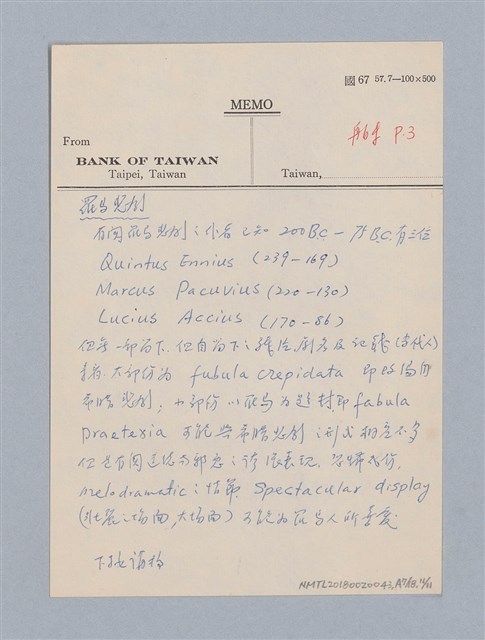 國67 57.7—100×500
MEMO
P.3
From
BANK OF TAIWAN
Taipei, Taiwan
Taiwan,
羅馬悲劇
有関羅馬悲劇之作者已知 200B.C.— B.C.有三位
Quintus Ennius (239—169)
Marcus Pacuvius (220—130)
Lucius Accius (170—86)
但無一部留下.但自留下之殘活,劇名及記錄(当代人)
大部份為 fabula crepidata 即
希臘悲劇, 小部份以羅馬為題材即fabula
praetexia 可能與希臘悲劇之形式相差不多
但是有関道德与邪惡之誇張表現.
melodramatic之情節. Spectacular display
(壯麗之場面,大場面) 可能為羅馬人所喜愛
NMTL20180020043